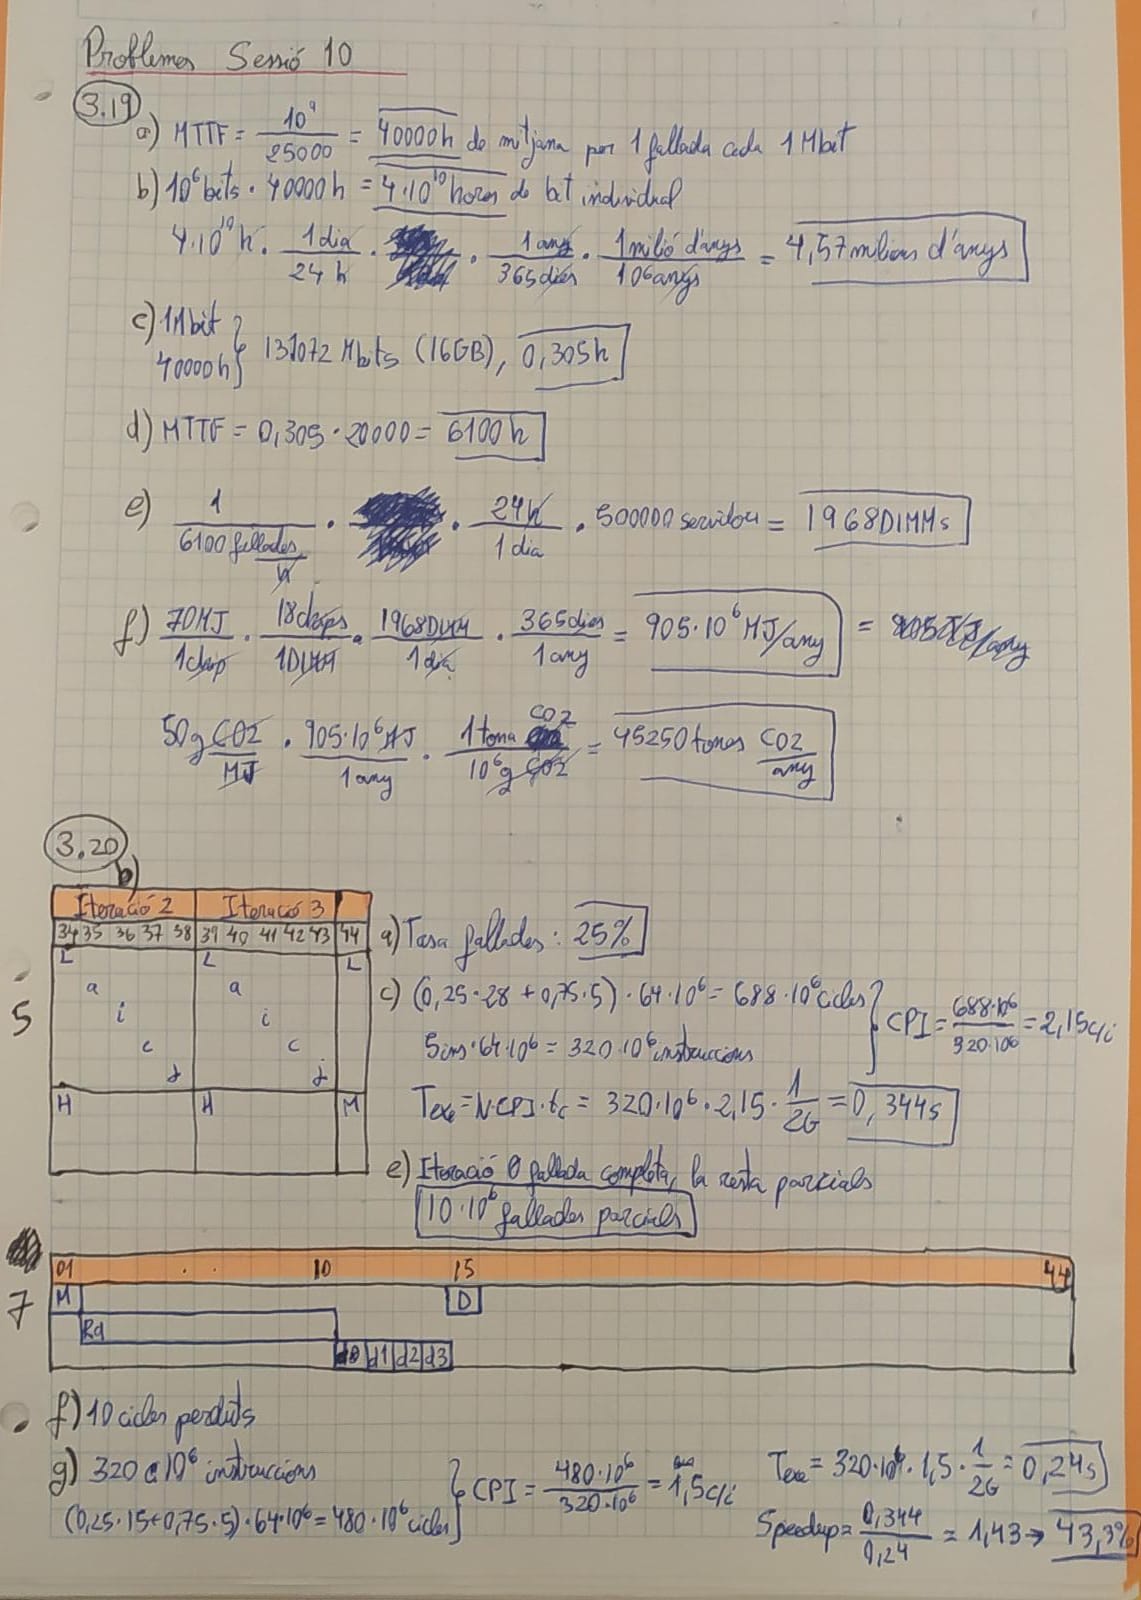 Problemes Sessió 10
3.19
a) MTTF = 10⁹/25000 = 40000h de mitjana per 1 fallada cada 1 Mbit
b) 10⁶ bits · 40000 h = 4·10¹⁰ hores de bit individual
4·10¹⁰ h · 1 dia/24 h · 1 any/365 dies · 1 milió d'anys/106 anys = 4,57 milions d'anys
c) 1Mbit
40000h } 131072 Mbits (16GB), 0,305h
d) MTTF = 0,305 · 20000 = 6100 h
e) 1/6100 fallades/h · 24h/1 dia · 500000 servidors = 1968 DIMMs
f) 70MJ/1 chip · 18 chips/1 DIMM · 1968 DIMM/1 dia · 365 dies/1 any = 905·10⁶ MJ/any =
50g CO2/MJ · 905·10⁶ MJ/1 any · 1 tona CO2/10⁶ g CO2 = 45250 tones CO2/any
3.20
b)
Iteració 2 Iteració 3
34 35 36 37 38 39 40 41 42 43 44
L L L
a a
i i
c c
j j
H H M
5
a) Tasa fallades: 25%
c) (0,25·28 + 0,75·5) · 64·10⁶ = 688·10⁶ cicles
5 ins · 64·10⁶ = 320·10⁶ instruccions } CPI = 688·10⁶/320·10⁶ = 2,15 c/i
Texe = N·CPI·tc = 320·10⁶ · 2,15 · 1/2G = 0,344s
e) Iteració 0 fallada completa, la resta parcials
10·10⁶ fallades parcials
7
01 . . 10 15 44
M D
Rd
d0 d1 d2 d3
f) 10 cicles perduts
g) 320·10⁶ instruccions
(0,25·15+0,75·5)·64·10⁶ = 480·10⁶ cicles } CPI = 480·10⁶/320·10⁶ = 1,5 c/i
Texe = 320·10⁶ · 1,5 · 1/2G = 0,24s
Speedup = 0,344/0,24 = 1,43 → 43,3%